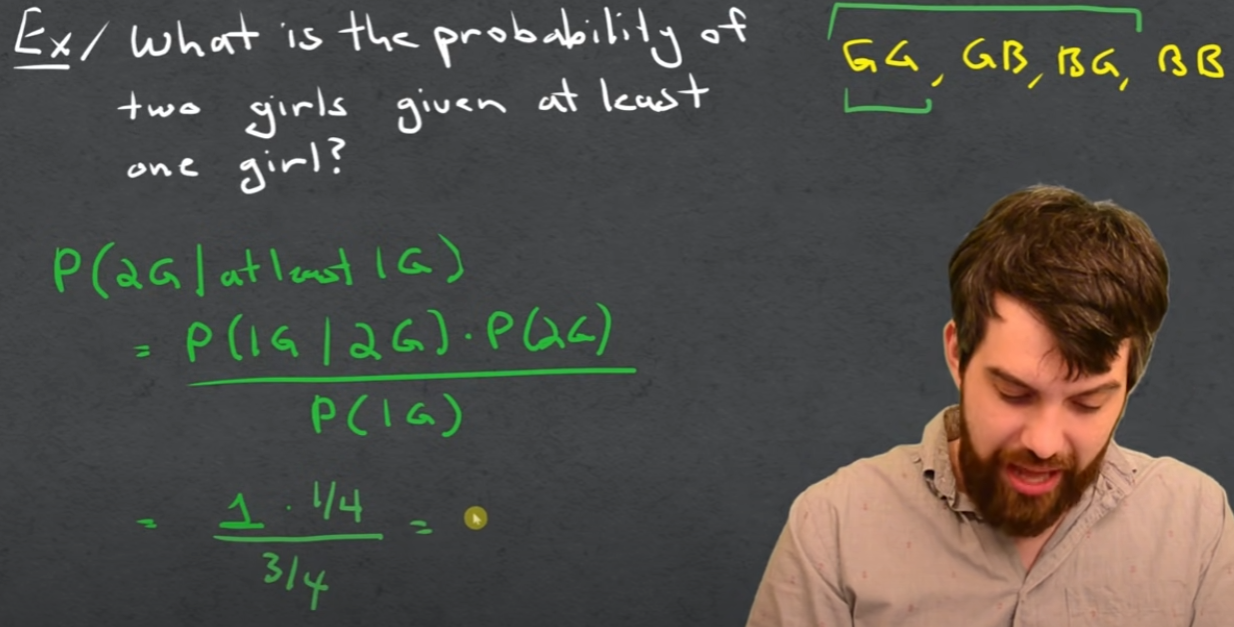 Ex/ What is the probability of
two girls given at least
one girl?
GG, GB, BG, BB
P(2G|at least 1G)
= P(1G|2G)·P(2G)
P(1G)
= 1 · 1/4 =
3/4